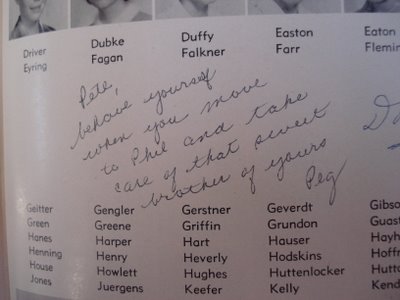 Driver Dubke Duffy Easton Eaton
Eyring Fagan Falkner Farr Flemin
Pete,
behave yourself
when you move
to Phil and take
care of that sweet
brother of yours
Peg
Geitter Gengler Gerstner Geverdt Gibso
Green Greene Griffin Grundon Guast
Hanes Harper Hart Hauser Hayh
Henning Henry Heverly Hodskins Hoffr
House Howlett Hughes Huttenlocker Hutto
Jones Juergens Keefer Kelly Kend